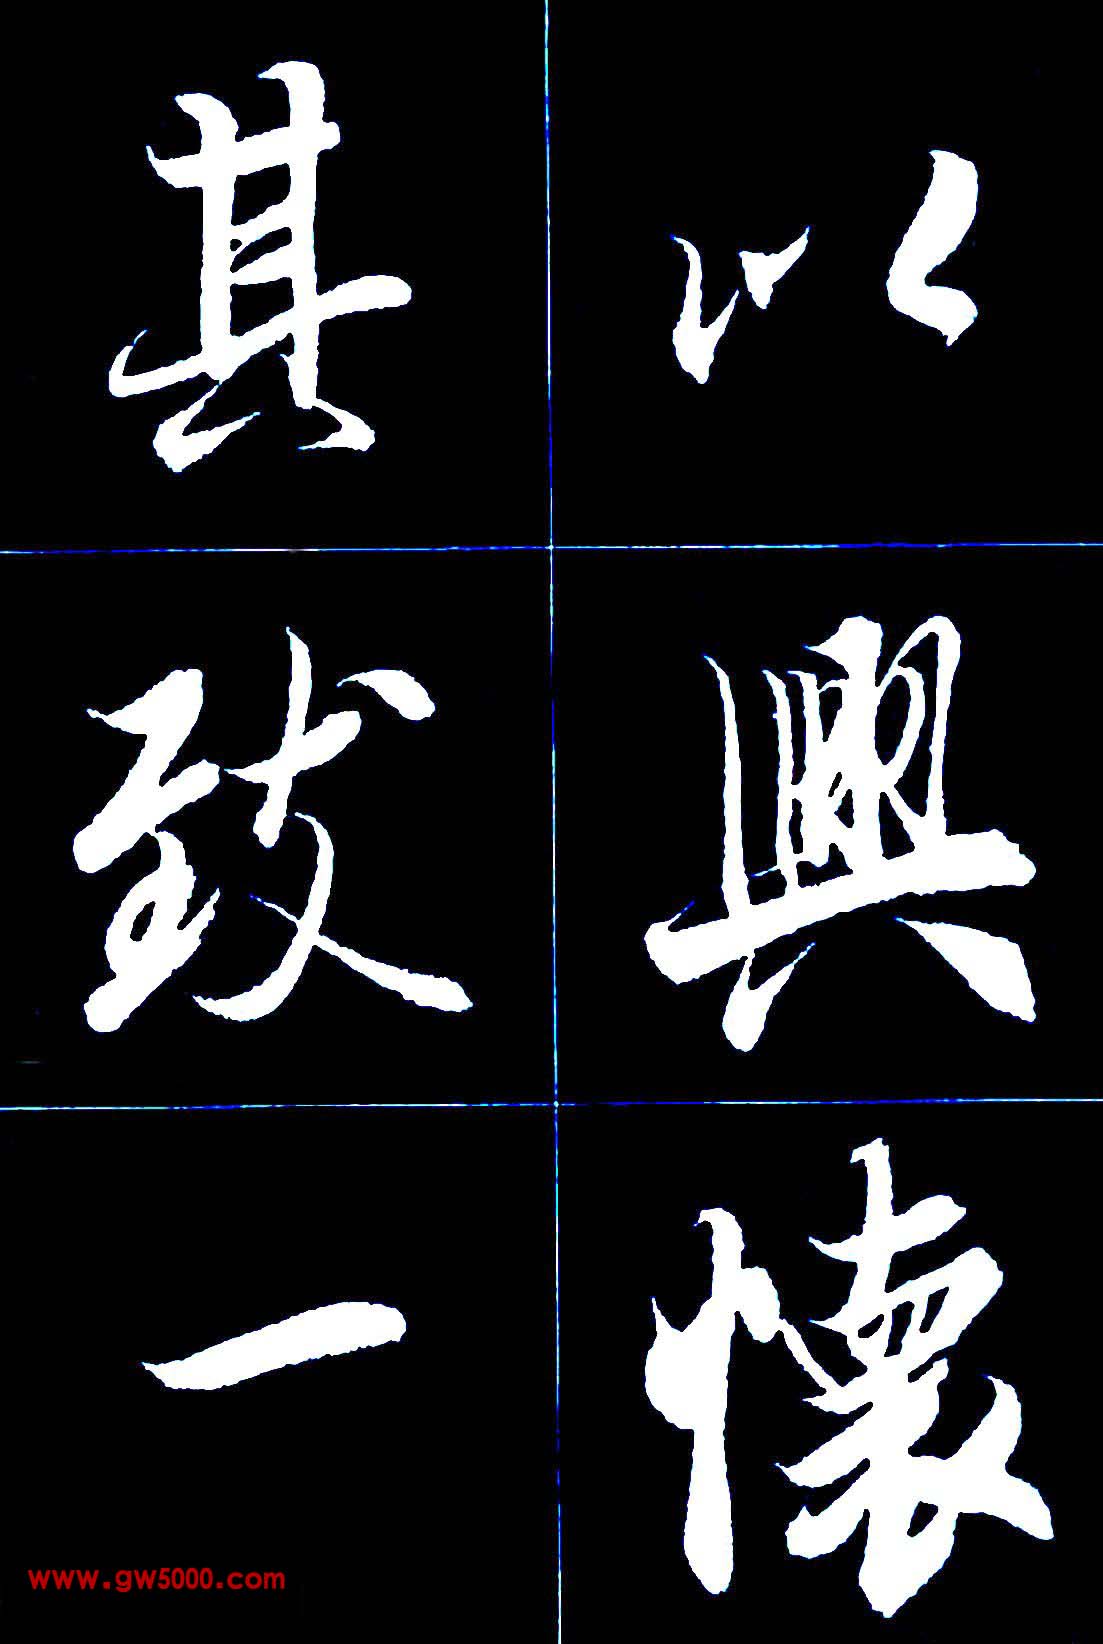 以興懷
其致一
www.gw5000.com